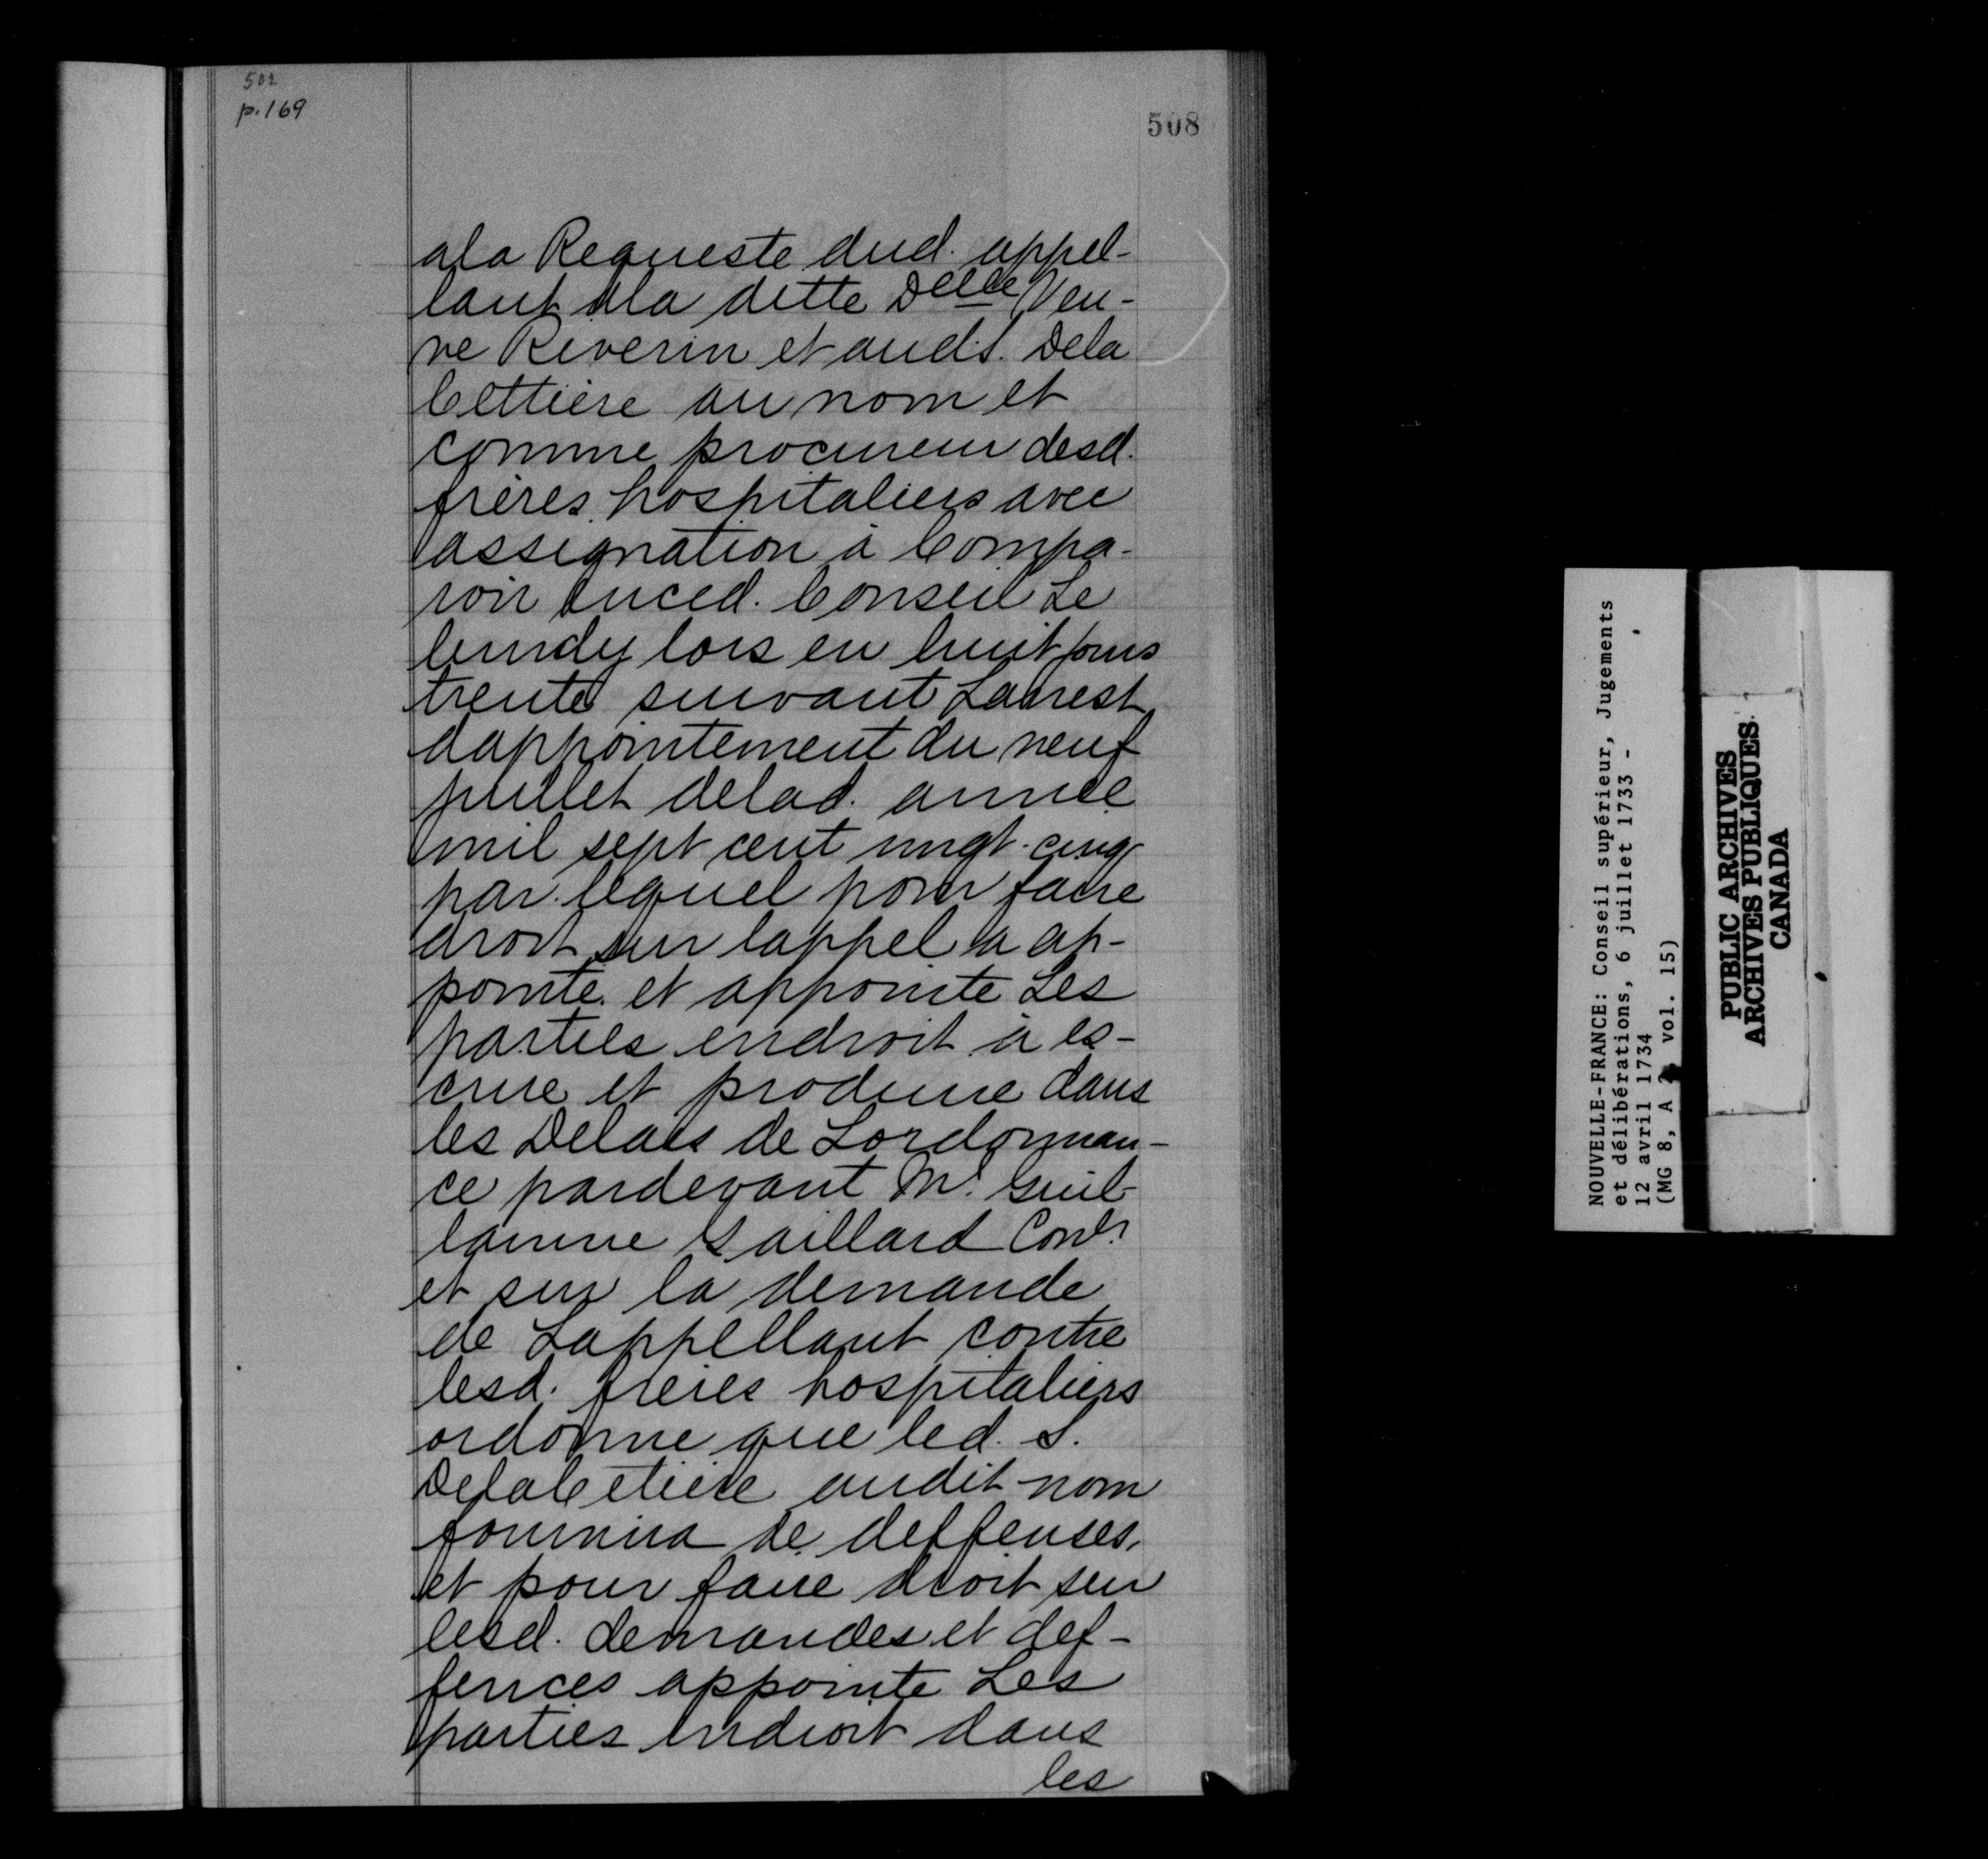 502
p. 169
508
ala Requeste dud. appel-
lant ala dette Delle Veu-
ve Riverin et aud. S. Dela
Cettiere au nom et
comme procureur desd.
frères hospitaliers avec
assignation à Compa-
roir enced. Conseil Le
lundy lors en huit jours
trente suivant Larrest
dappointement du neuf
juillet delad. année
mil sept cent vingt-cinq
par lequel pour faire
droit sur lappel a ap-
pointé et appointe Les
parties endroit à es-
crire et produire dans
les Delais de Lordonnan-
ce pardevant Mr. Guil-
laume Gaillard Conr
et sur la demande
de Lappellant contre
lesd. frères hospitaliers
ordonne que led. S.
DelaCetiere audit nom
fournira de deffenses,
et pour faire droit sur
lesd. demandes et def-
fences appointe Les
parties endroit dans
les
NOUVELLE-FRANCE: Conseil supérieur, Jugements
et délibérations, 6 juillet 1733 -
12 avril 1734
(MG 8, A vol. 15)
PUBLIC ARCHIVES
ARCHIVES PUBLIQUES
CANADA